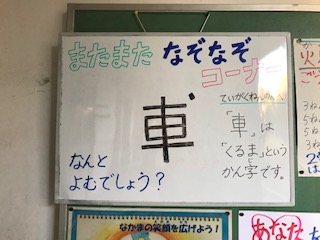 またまた なぞなぞ
コーナー
車
ていがくねんの
「車」は
「くるま」という
かん字です。
なんと
よむでしょう？
なかまの笑顔を広げよう！
あなた